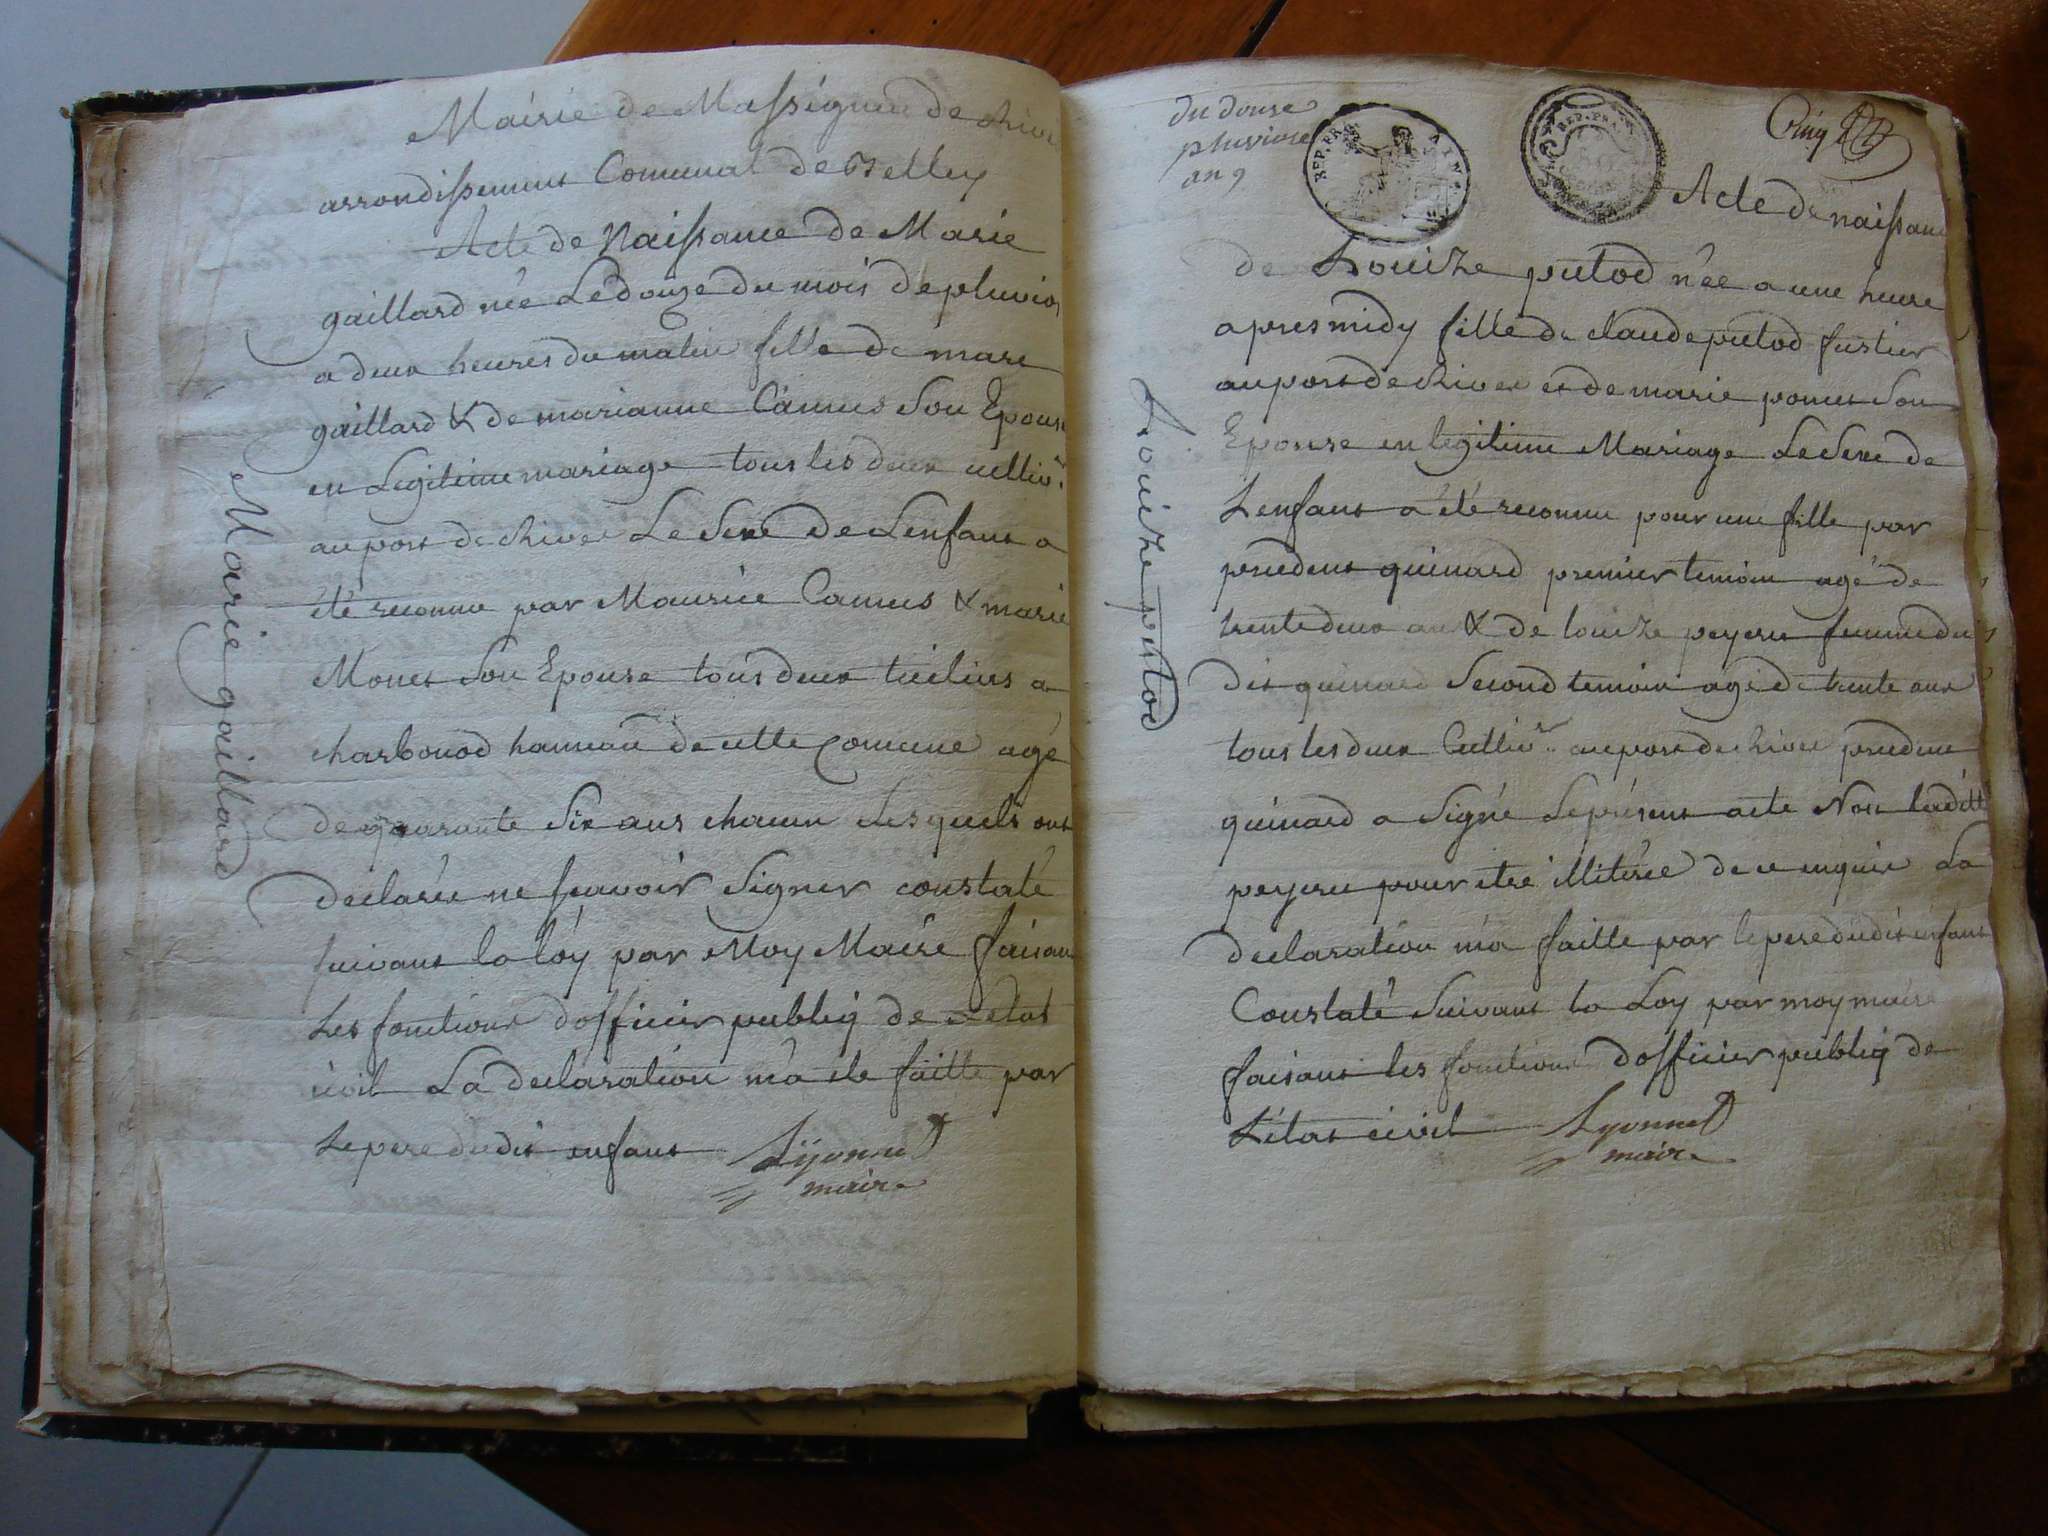 Mairie de Massignieu de Rives
arrondissement Comunal de Belley
Acte de Naissance de Marie
gaillard née Le douze du mois de pluvios
a deux heures du matin fille de marc
gaillard & de marianne Camus Son Epouse
en Legitime mariage tous les deux cultivr
au port de Rives Le Sexe de Lenfant a
été reconnu par Maurice Camus & marie
Monet Son Epouse tous deux
charbonod hameau de cette Comune agé
de quarante Six ans chacun Lesquels ont
declarée ne scavoir Signer constaté
suivant la loy par Moy Maire faisant
Les fonctions dofficier publiq de Letat
civil La declaration ma ete faitte par
Le pere dudit enfant Lyonnet
maire
Marie gaillard
du douse
pluviose
an 9
REP. FRA
AIN
REP. FRA
Cinq
Acte de naissance
de Louize putod née a une heure
apres midy fille de claude putod fustier
au port de Rives et de marie ponnet Son
Epouse en legitime Mariage Le Sexe de
Lenfant a été reconnu pour une fille par
prudent guinard premier temoin agé de
trente deux ans & de louize peyeru femme du
dit guinard Second temoin agé de trente ans
tous les deux Cultivr au port de Rives prudent
guinard a Signé Le présent acte Non ladite
peyeru pour etre illitérée de ce enquis La
declaration ma faitte par le pere dudit enfant
Constaté Suivant la Loy par moy maire
faisant les fonctions dofficier publiq de
Létat civil Lyonnet
maire
Louize putod